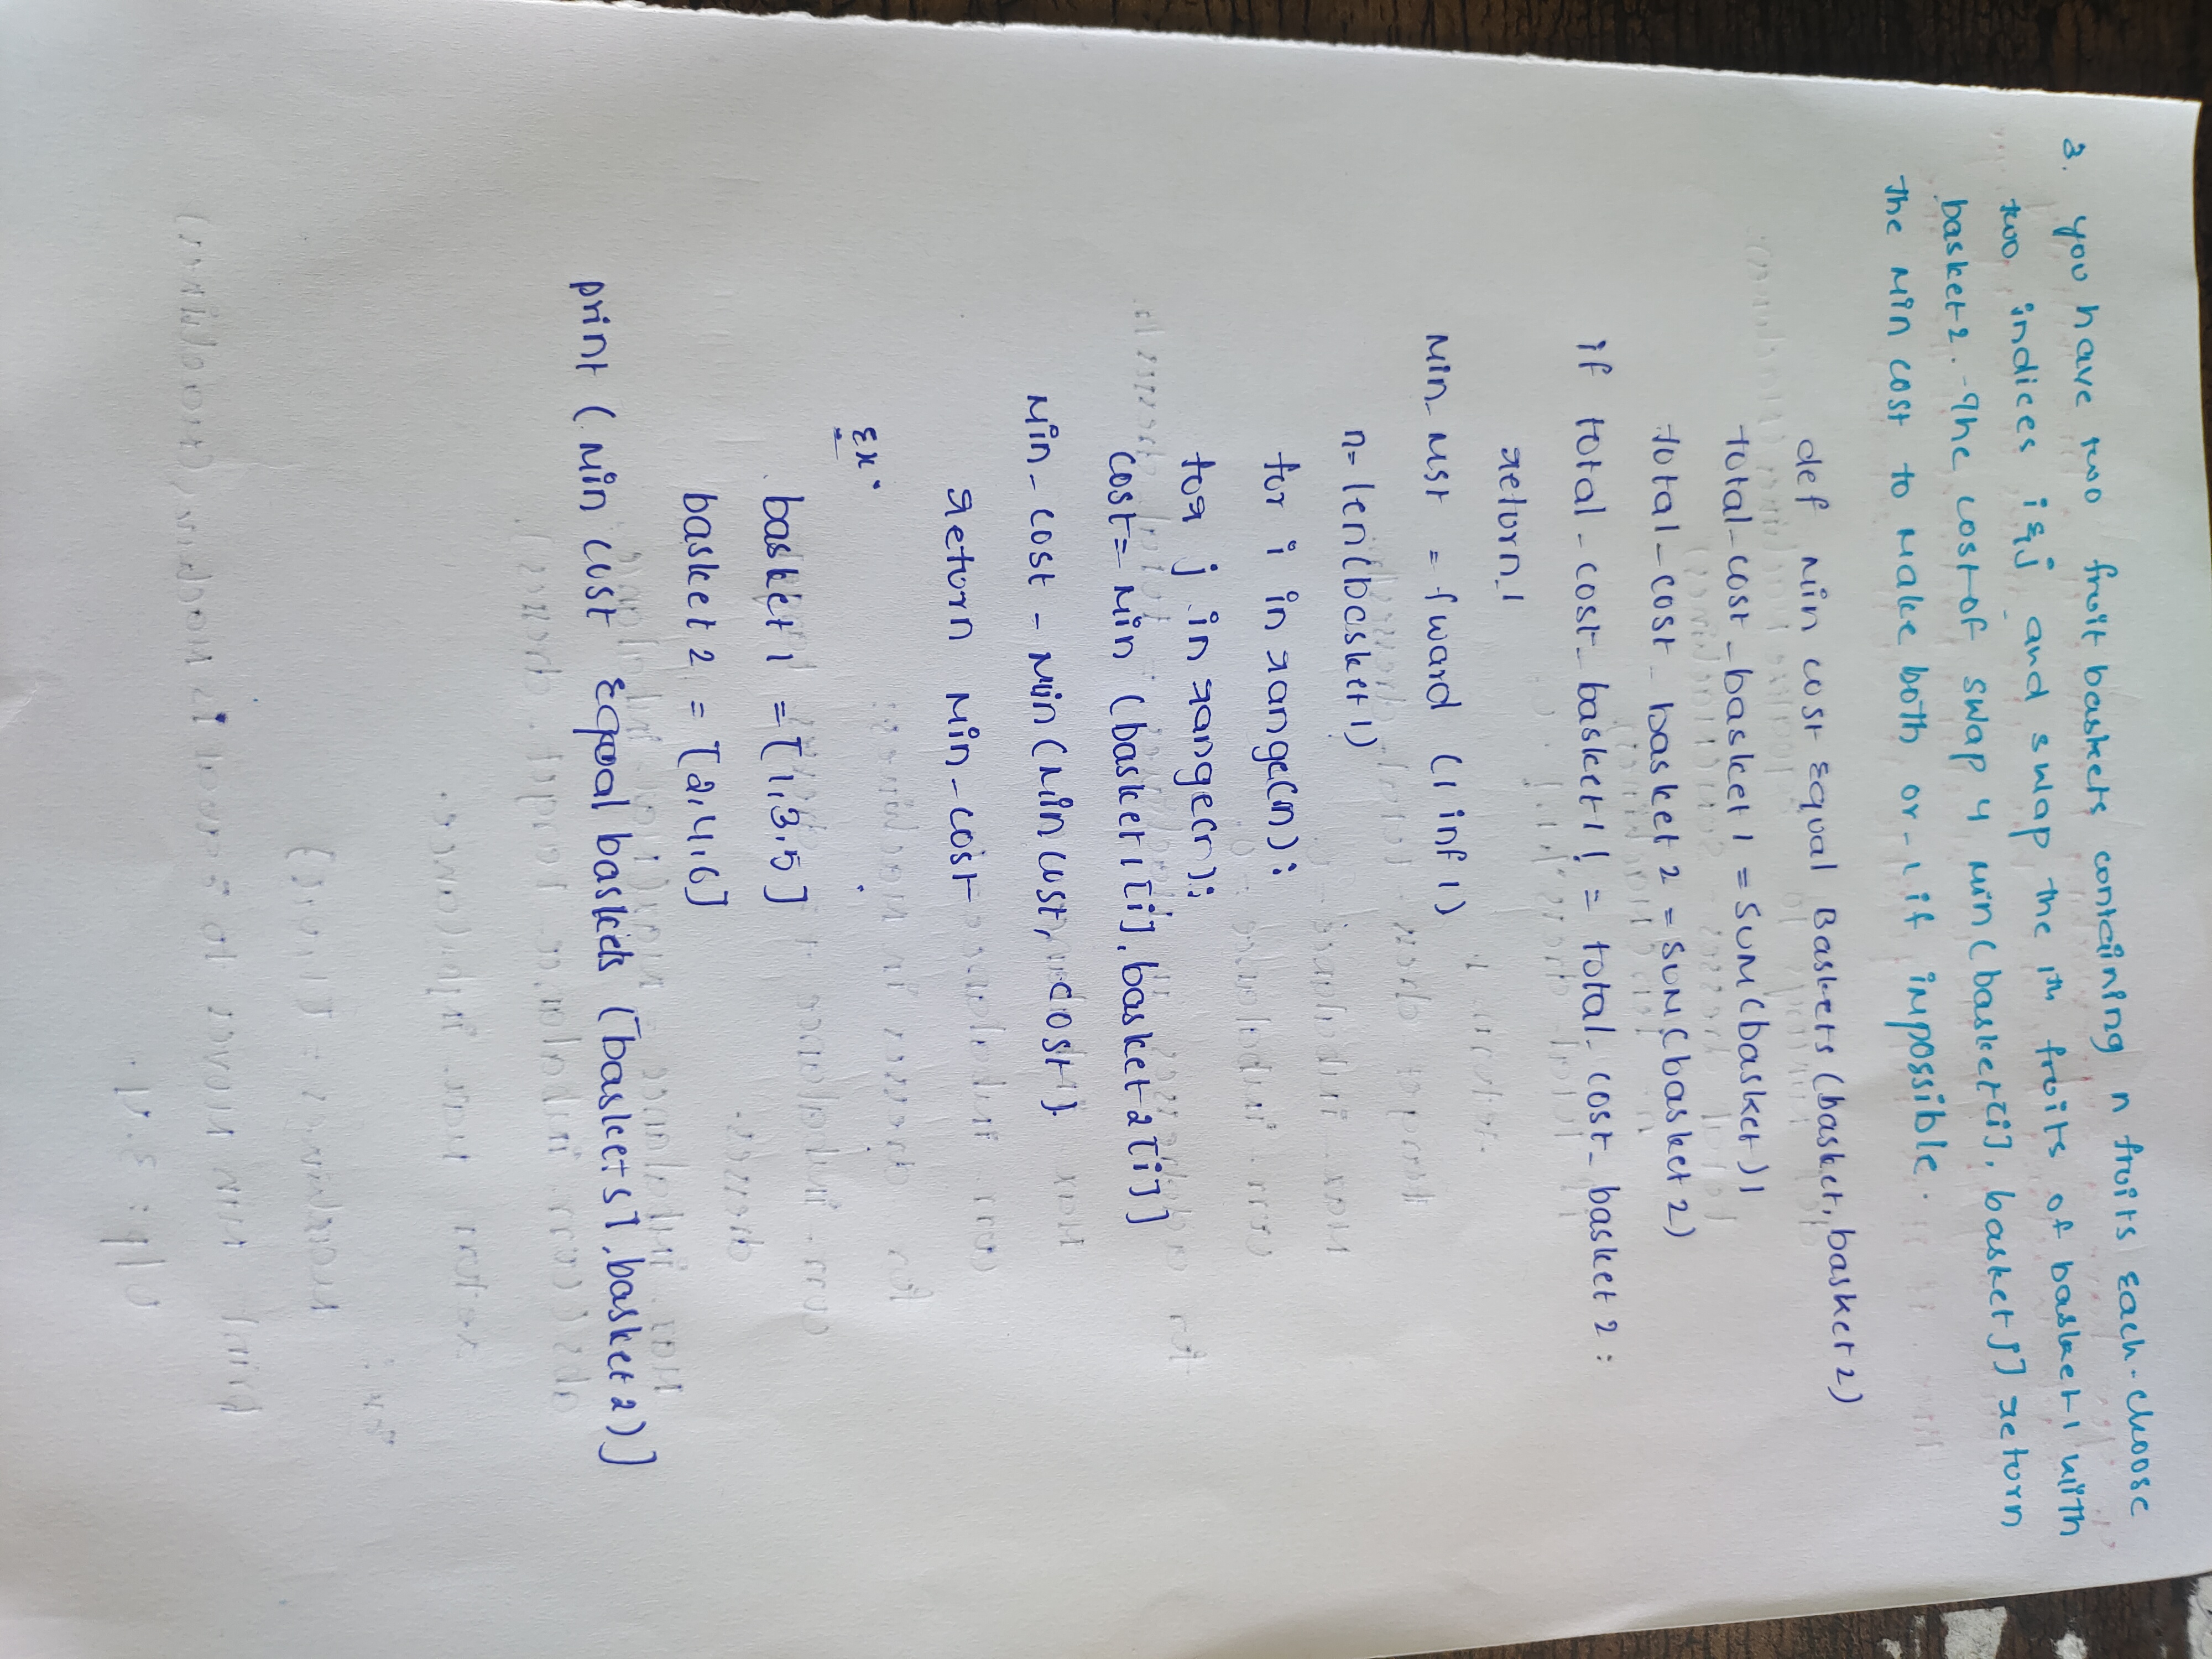 3. you have two fruit baskets containing n fruits each. choose
two indices i & j and swap the ith fruits of basket 1 with
basket 2. The cost of swap 4 min (basket [i], basket j] return
the min cost to make both or -1 if impossible.
def min cost Equal Baskets (basket, basket 2)
total_cost_basket 1 = sum (basket) 1
total_cost_basket 2 = sum (basket 2)
if total_cost_basket 1 != total_cost_basket 2:
return_1
min_mst = fward (1 inf 1)
n = len (basket 1)
for i in range(n):
for j in range(n):
cost = min (basket 1 [i], basket 2 [i]]
min_cost = min (min cost, cost)
return min-cost
Ex.
basket 1 = [1,3,5]
basket 2 = [2,4,6]
print (min cost Equal baskets (baskets 1, basket 2)]